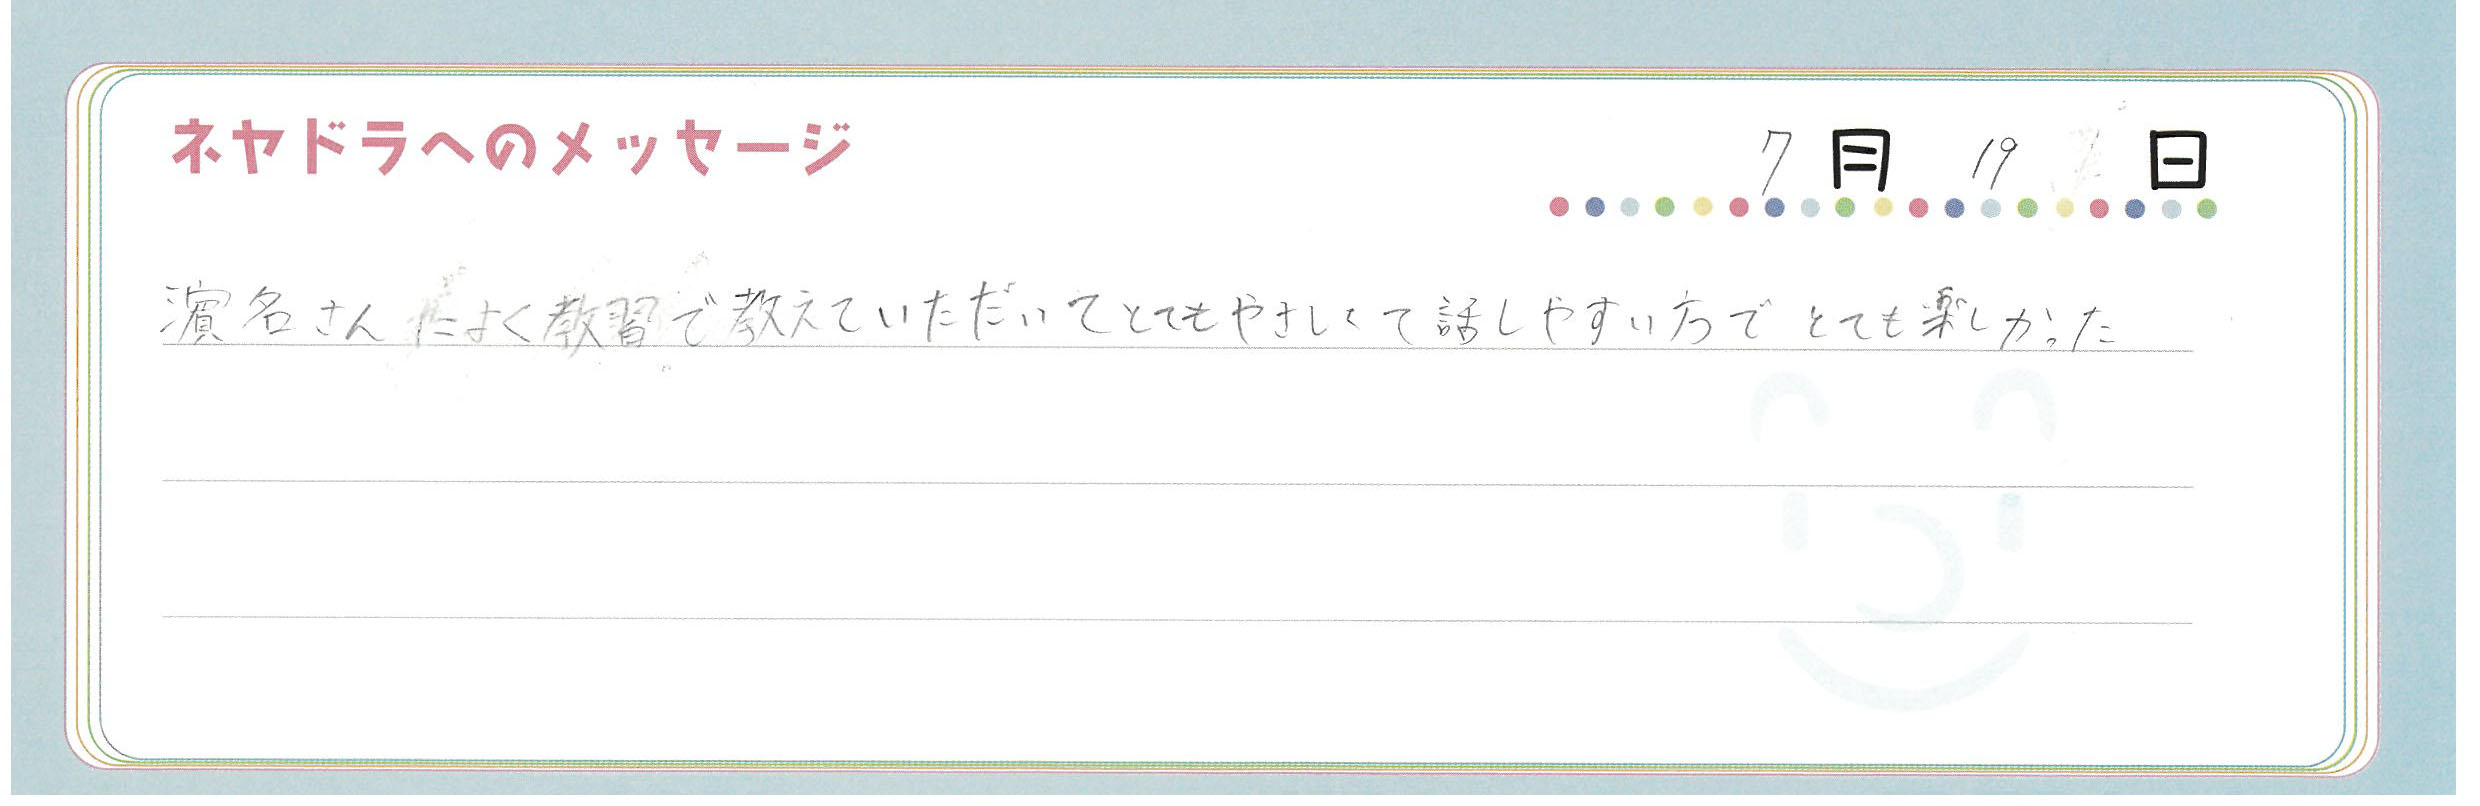 ネヤドラへのメッセージ
7月 19 日
濵名さんによく教習で教えていただいてとてもやさしくて話しやすい方でとても楽しかった